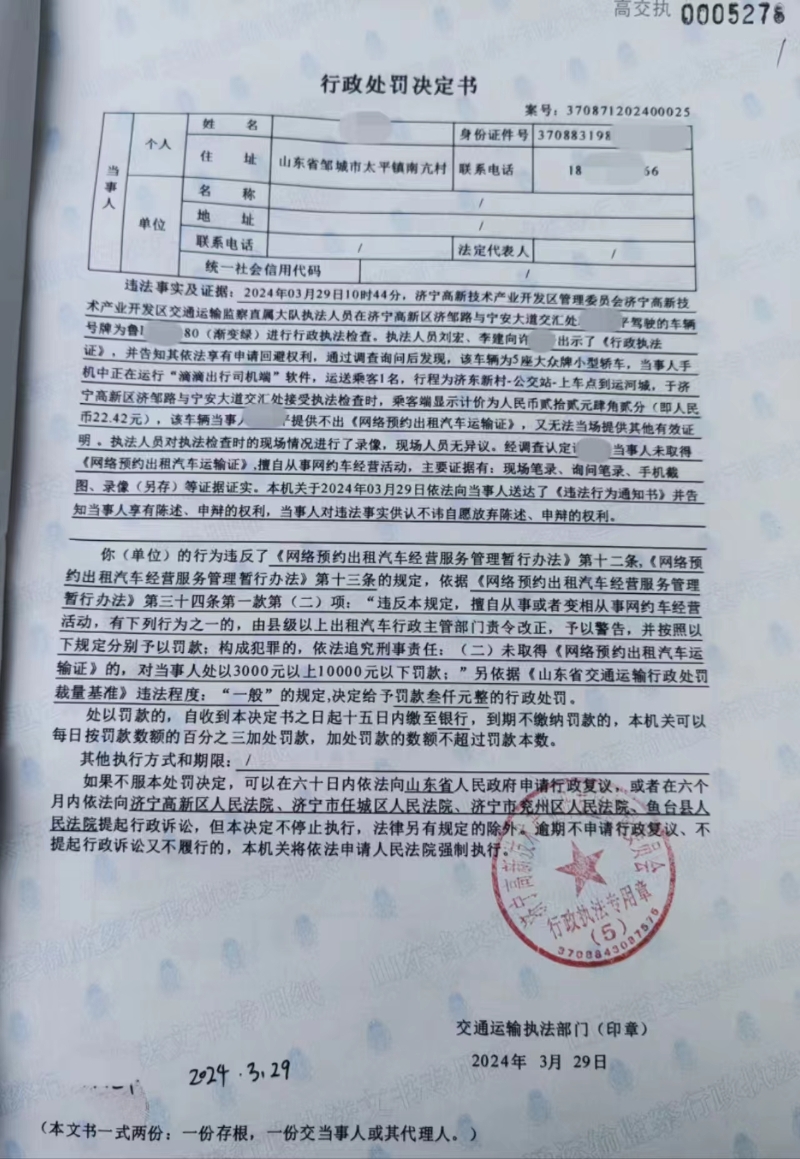 高交执 0005278
行政处罚决定书
案号：370871202400025
当事人
个人
姓 名
身份证件号 370883198
住 址 山东省邹城市太平镇南亢村 联系电话 18 66
单位
名 称 /
地 址 /
联系电话 / 法定代表人 /
统一社会信用代码 /
违法事实及证据：2024年03月29日10时44分，济宁高新技术产业开发区管理委员会济宁高新技
术产业开发区交通运输监察直属大队执法人员在济宁高新区济邹路与宁安大道交汇处 驾驶的车辆
号牌为鲁 80（渐变绿）进行行政执法检查。执法人员刘宏、李建向许 出示了《行政执法
证》，并告知其依法享有申请回避权利，通过调查询问后发现，该车辆为5座大众牌小型轿车，当事人手
机中正在运行“滴滴出行司机端”软件，运送乘客1名，行程为济东新村-公交站-上车点到运河城，于济
宁高新区济邹路与宁安大道交汇处接受执法检查时，乘客端显示计价为人民币贰拾贰元肆角贰分（即人民
币22.42元），该车辆当事人 提供不出《网络预约出租汽车运输证》，又无法当场提供其他有效证
明。执法人员对执法检查时的现场情况进行了录像，现场人员无异议。经调查认定 当事人未取得
《网络预约出租汽车运输证》,擅自从事网约车经营活动，主要证据有：现场笔录、询问笔录、手机截
图、录像（另存）等证据证实。本机关于2024年03月29日依法向当事人送达了《违法行为通知书》并告
知当事人享有陈述、申辩的权利，当事人对违法事实供认不讳自愿放弃陈述、申辩的权利。
你（单位）的行为违反了《网络预约出租汽车经营服务管理暂行办法》第十二条,《网络预
约出租汽车经营服务管理暂行办法》第十三条的规定，依据《网络预约出租汽车经营服务管理
暂行办法》第三十四条第一款第（二）项：“违反本规定，擅自从事或者变相从事网约车经营
活动，有下列行为之一的，由县级以上出租汽车行政主管部门责令改正，予以警告，并按照以
下规定分别予以罚款；构成犯罪的，依法追究刑事责任：（二）未取得《网络预约出租汽车运
输证》的，对当事人处以3000元以上10000元以下罚款；”另依据《山东省交通运输行政处罚
裁量基准》违法程度：“一般”的规定,决定给予罚款叁仟元整的行政处罚。
处以罚款的，自收到本决定书之日起十五日内缴至银行，到期不缴纳罚款的，本机关可以
每日按罚款数额的百分之三加处罚款，加处罚款的数额不超过罚款本数。
其他执行方式和期限：/
如果不服本处罚决定，可以在六十日内依法向山东省人民政府申请行政复议，或者在六个
月内依法向济宁高新区人民法院、济宁市任城区人民法院、济宁市兖州区人民法院、鱼台县人
民法院提起行政诉讼，但本决定不停止执行，法律另有规定的除外。逾期不申请行政复议、不
提起行政诉讼又不履行的，本机关将依法申请人民法院强制执行。
行政执法专用章
（5）
3708843087575
交通运输执法部门（印章）
2024年 3月 29日
2024.3.29
（本文书一式两份：一份存根，一份交当事人或其代理人。）